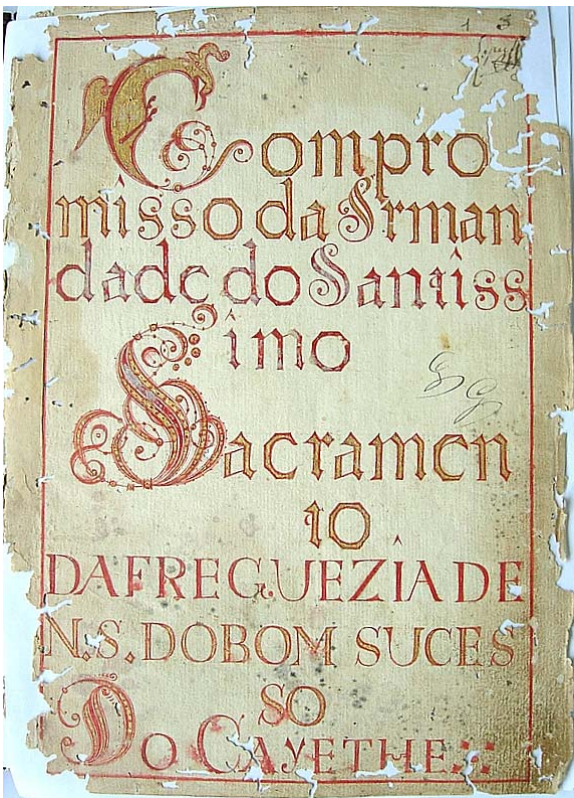 Compro
misso da Irman
dade do Santiss
imo
Sacramen
to
DA FREGUEZIA DE
N. S. DO BOM SUCES
SO
DO CAYETHE